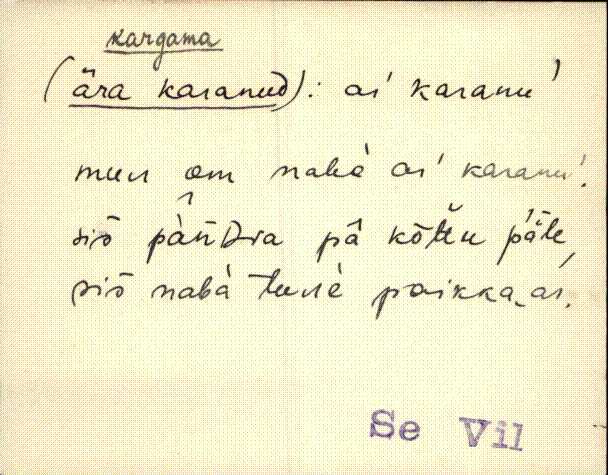 kargama
(ära karanud): aŕ karanu'
mul om nabà aŕ karanu'.
siš pàǹDra pā̂ kõttu päle,
siš nabà tulè paikka aŕ.
Se Vil